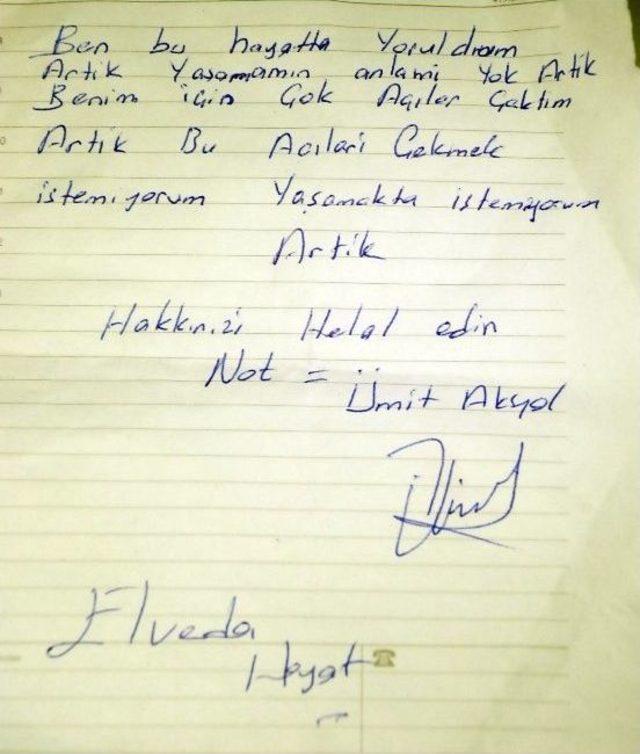 Ben bu hayatta Yoruldum
Artik Yaşamamın anlami Yok Artik
Benim için Çok Açılar Çektim
Artik Bu Acılari Çekmek
istemiyorum Yaşamakta istemiyorum
Artik
Hakkınızi Helal edin
Not = Ümit Akyol
Elveda
Hayat